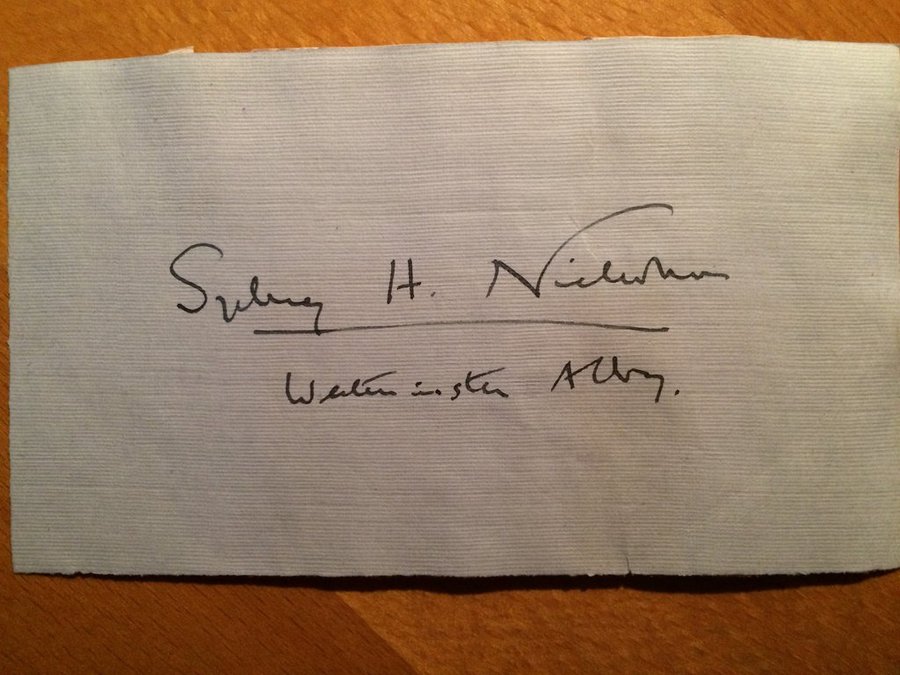 Sydney H. Nicholson
Westminster Abbey.